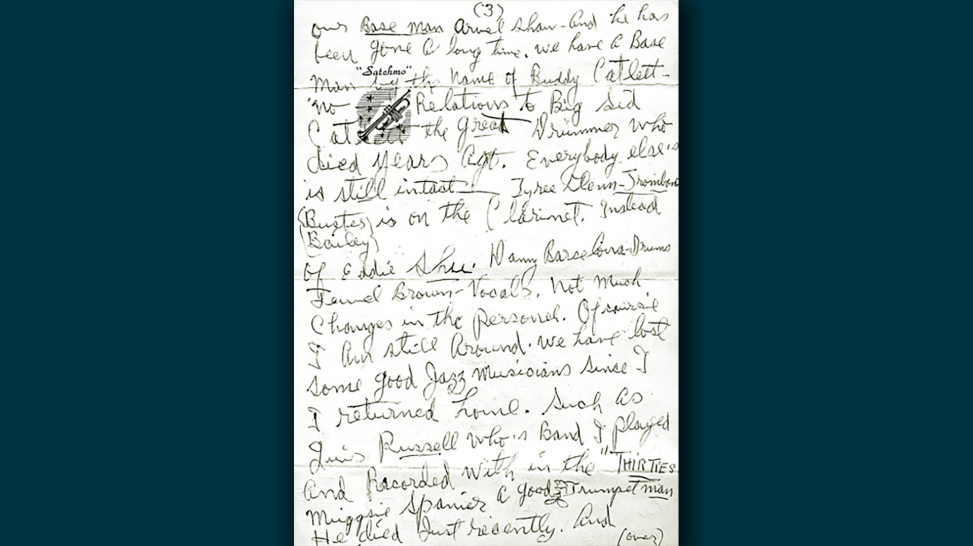 (3)
our Base man Arvel Shaw - And he has
been gone a long time. we have a Base
"Satchmo"
man by the Name of Buddy Catlett -
'no Relations to Big Sid
Cat the Great Drummer who
died years Ago. Everybody else's
is still intact Tyree Glenn - Trombone
(Buster Bailey) is on the Clarinet. Instead
of Eddie Shu. Danny Barcelona - Drums
Jewel Brown - Vocals. Not much
Changes in the Personel. Of course
I Am still Around. we have lost
some good Jazz musicians sinse I
I returned home. Such As
Luis Russell who's Band I played
And Recorded with in the "THIRTIES
Muggsie Spanier A good Trumpet man
He died Just recently. And
(over)